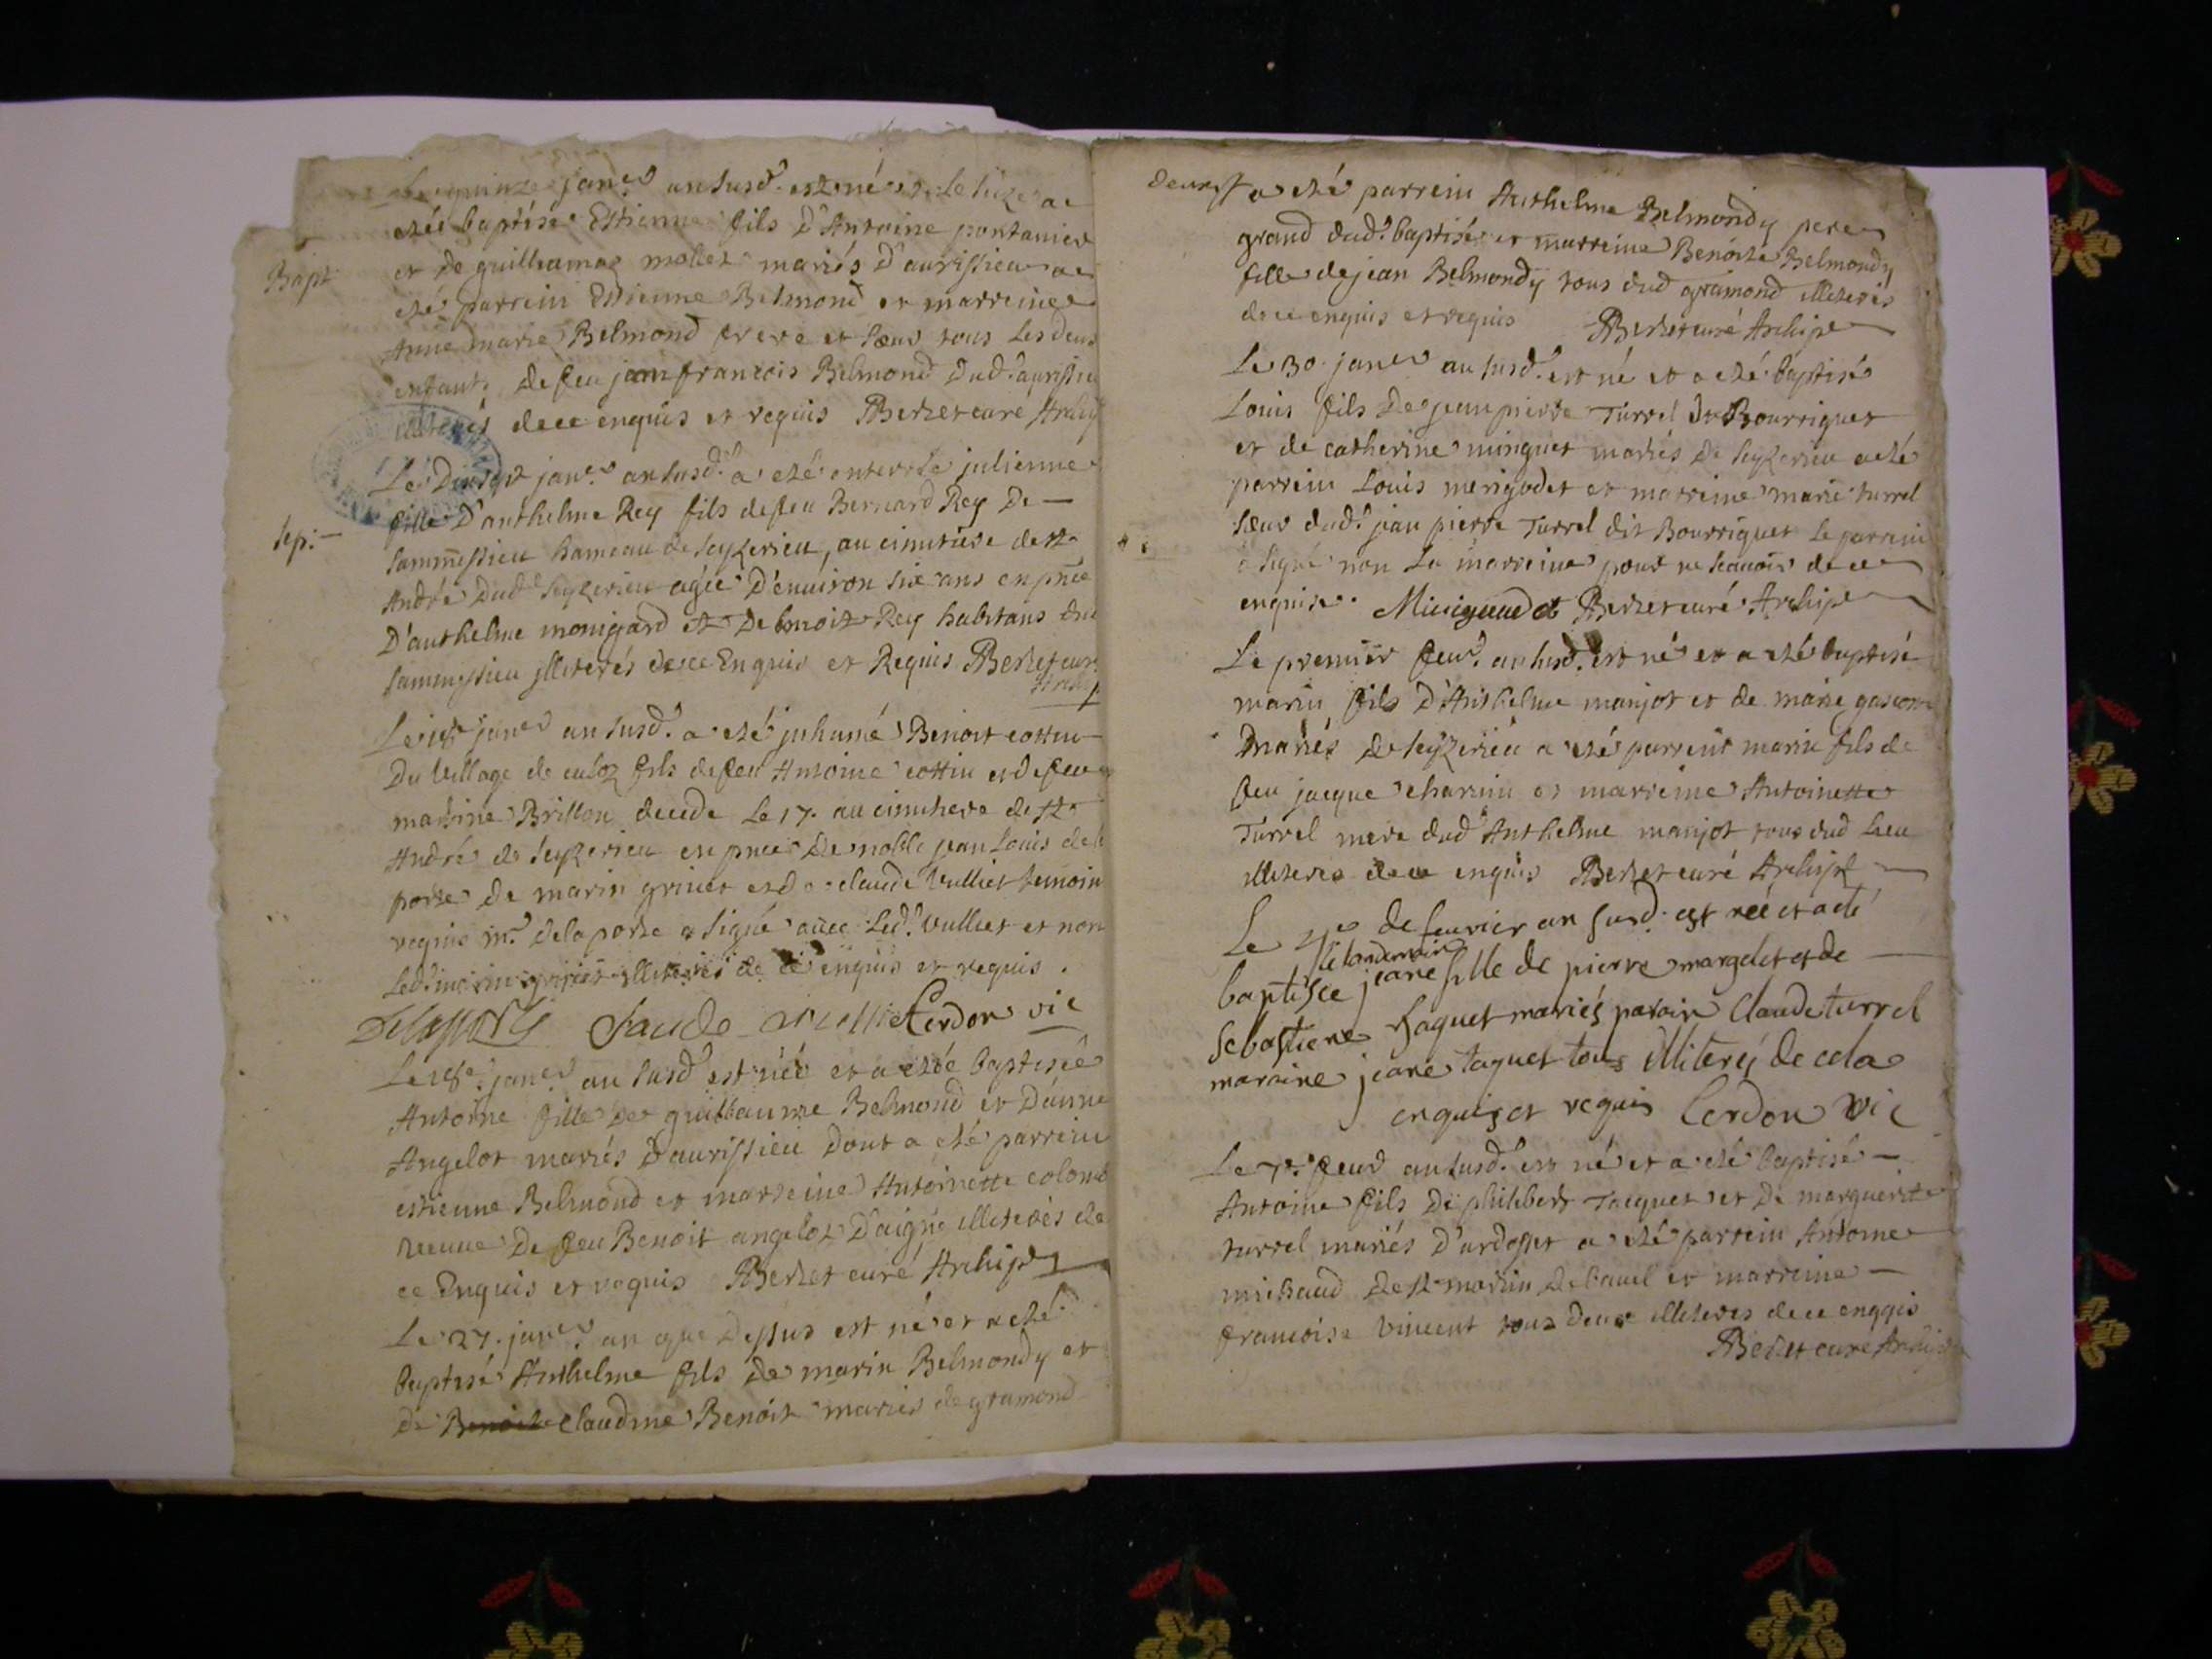 Le quinze janer an susd. est né et le seize a
etéé baptisé Estienne fils D'Antoine pontanier
Bapt et De guilliamaz mollet mariés D'aurissieu a
eté parrein Estienne Belmond et marreine
Anne marie Belmond frere et sœur tous Les deux
enfants de feu jean francois Belmond dud. aurissieu
illiterés de ce enquis et requis Berzet curé Archip
Le Dixsept janer an susd. a eté enterrée julienne
fille D'anthelme Rey fils de feu Bernard Rey De —
sep: — sammessieu hameau de seyzerieu, au cimitiere de st
André Dud seyzerieu agée D'environ six ans en pnce
D'anthelme monigard et De benoit Rey habitans dud
sammessieu illiterés de ce Enquis et Requis Berzet curé
Archip
Le 18e janer an susd. a eté inhumé Benoit cottin
Du village de culoz fils de feu Antoine cottin et de feue
martine Brillon decede Le 17. au cimitiere de st
André de seyzerieu en pnce De noble jean Louis de la
porte De marin grinet et de claude Vulliet temoin
requis mr. dela porte a signé avec Led. vulliet et non
Led. marin grinet illiterés de ce enquis et requis.
Delaporte Claude vulliet Cerdon vic
Le 18e. janer an susd est née et a etée baptisée
Antoine fille De guillaume Belmond et D'anne
Angelot mariés D'aurissieu Dont a eté parrein
estienne Belmond et marreine Antoinette colomb
veuve De feu Benoit angelot D'aigne illiterés de
ce Enquis et requis Berzet curé Archip
Le 27. janer an que Dessus est né et a eté
baptisé Anthelme fils De marin Belmondy et
de Benoite claudine Benoit mariés de gramond
a eté parrein Anthelme Belmondy pere
grand dud. baptisé et marreine Benoite Belmondy
fille de jean Belmondy tous dud gramond illiterés
de ce enquis et requis Berzet curé Archip
Le 30. janer an susd. est né et a eté baptisé
Louis fils De jean pierre Turrel dt Bourriquet
et de catherine minguet mariés De seyzerieu a eté
parrein Louis merigodet et marreine marie turrel
sœur dud. jean pierre Turrel dit Bourriquet Le parrain
a signé non La marreine pour ne scavoir de ce
enquise. Berzet curé Archip
Le premier feur. an susd. est né et a eté baptisé
marin fils D'Anthelme manjot et de marie gascon
mariés de seyzerieu a eté parrein marin fils de
feu jacque charnin et marreine Antoinette
Turrel mere dud Anthelme manjot, tous dud lieu
illiterés de ce enquis Berzet curé Archip
Le 4e de feurier an susd. est née et a eté
le landemain
baptisée jeane fille de pierre margelet et de —
sebastiene Taquet mariés parain Claude turrel
maraine jeane taquet tous illiterés de cela
enquis et requis Cerdon vic
Le 7e. feur an susd. est né et a eté baptisé —
Antoine fils De philibert Tacquet et De marguerite
turrel mariés D'ardosset a eté parrein Antoine
michaud de st martin de bavel et marreine —
francoise vincent tous Deux illiterés de ce enquis
Berzet curé Archip